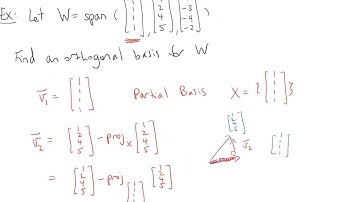 Ex: Let W = span ( [1 1 1 1], [1 2 4 5], [1 -3 -4 -2] )
Find an orthogonal basis for W
v₁ = [1 1 1 1] Partial Basis X = { [1 1 1 1] }
v₂ = [1 2 4 5] - proj_X [1 2 4 5]
[1 2 4 5] v₂ [1 1 1 1]
= [1 2 4 5] - proj_[1 1 1 1] [1 2 4 5]